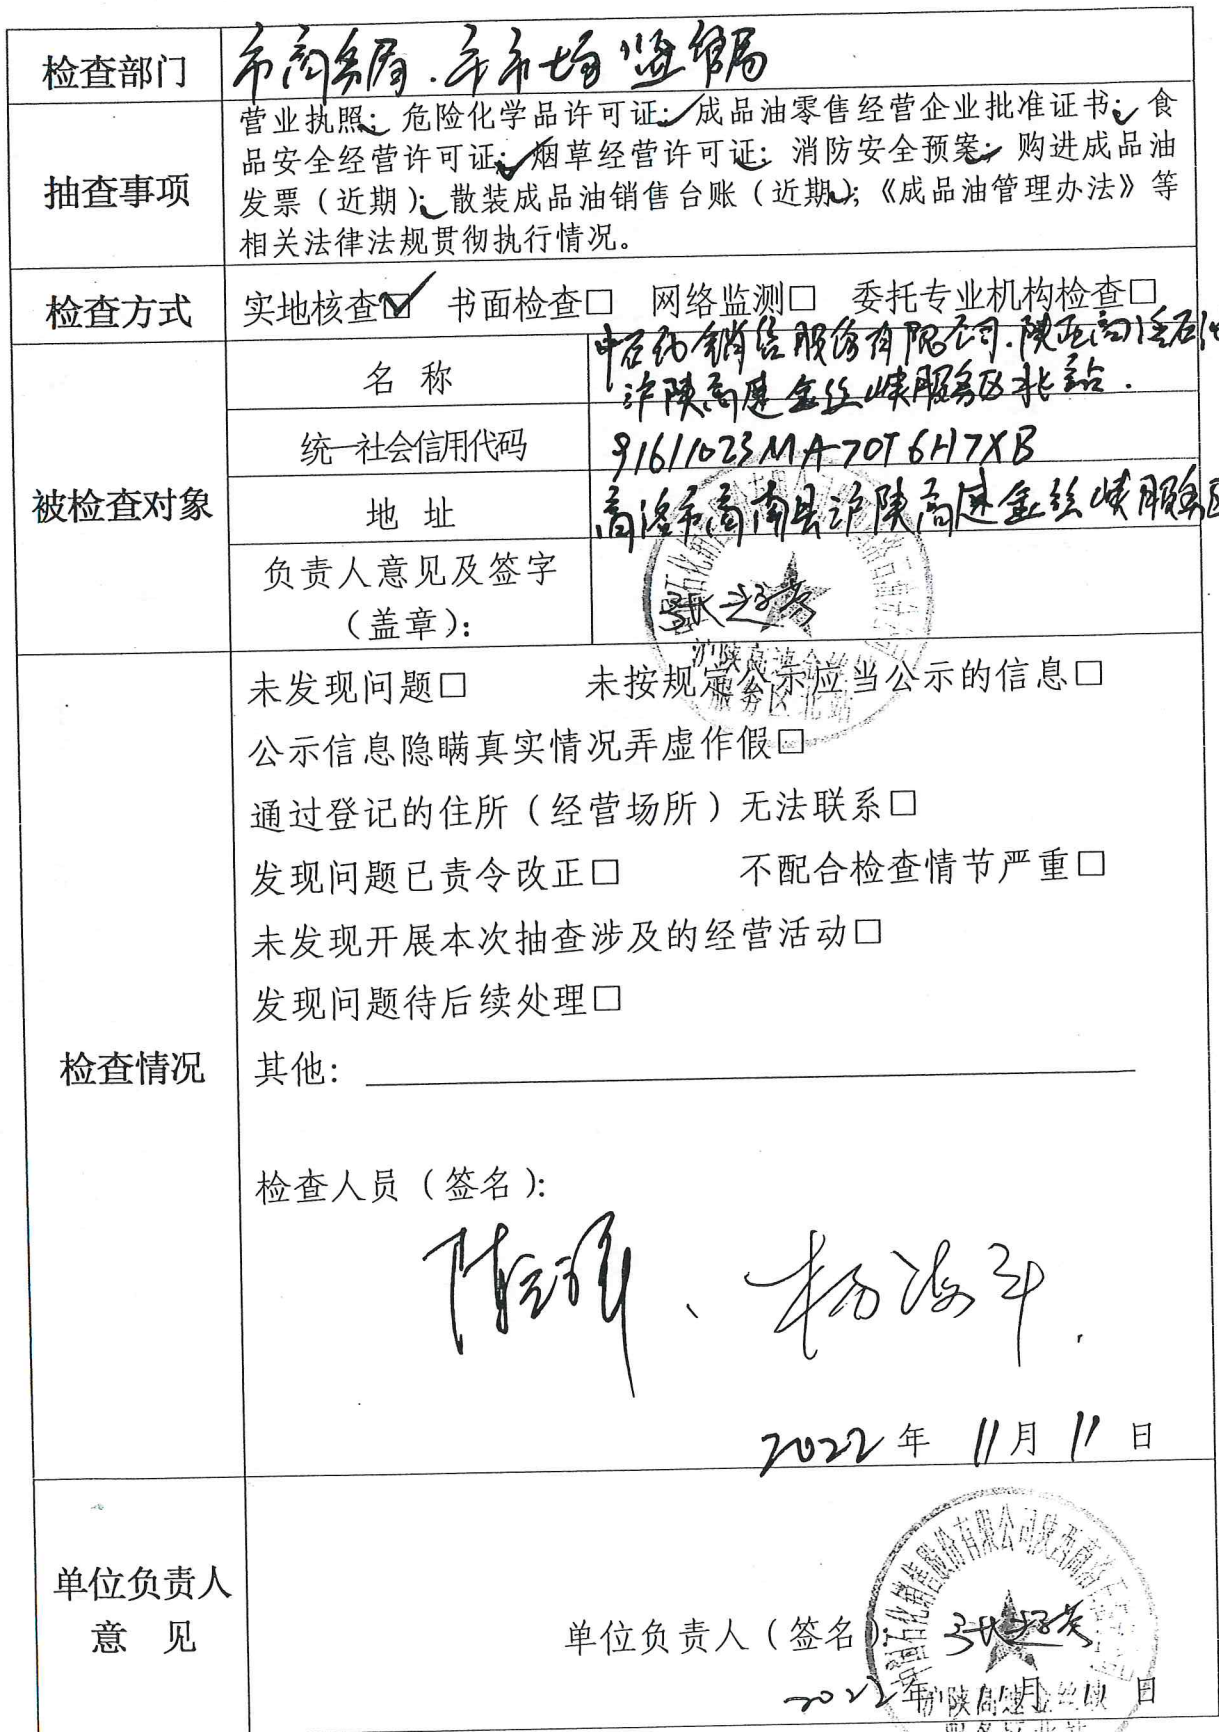 检查部门
市商务局.市市场监管局
抽查事项
营业执照；危险化学品许可证；成品油零售经营企业批准证书；食
品安全经营许可证；烟草经营许可证；消防安全预案；购进成品油
发票（近期）；散装成品油销售台账（近期）；《成品油管理办法》等
相关法律法规贯彻执行情况。
检查方式
实地核查☑ 书面检查□ 网络监测□ 委托专业机构检查□
被检查对象
名 称
中石化销售股份有限公司.陕西商洛石油
沪陕高速金丝峡服务区北站.
统一社会信用代码
91611023MA70T6H7XB
地 址
商洛市商南县沪陕高速金丝峡服务区
负责人意见及签字
（盖章）：
沪陕高速金丝峡
服务区北站
检查情况
未发现问题□ 未按规定公示应当公示的信息□
公示信息隐瞒真实情况弄虚作假□
通过登记的住所（经营场所）无法联系□
发现问题已责令改正□ 不配合检查情节严重□
未发现开展本次抽查涉及的经营活动□
发现问题待后续处理□
其他：
检查人员（签名）：
2022年 11月 11日
单位负责人
意 见
中国石化销售股份有限公司陕西商洛石油分公司
单位负责人（签名）
2022年 11月 11日
沪陕高速金丝峡
服务区北站